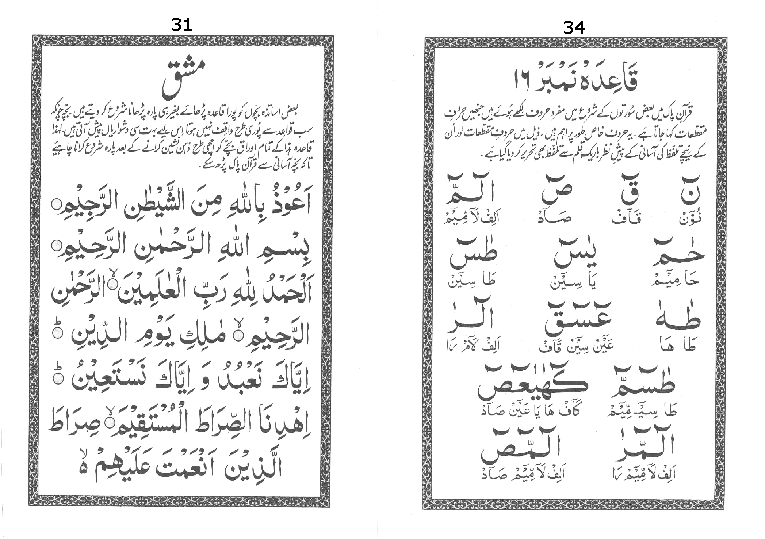 31
مشق
بعض اساتذہ بچوں کو پورا قاعدہ پڑھائے بغیر ہی پارہ پڑھانا شروع کر دیتے ہیں بچہ چونکہ
سب قواعد سے پوری طرح واقف نہیں ہوتا اس لیے بہت سی دشواریاں پیش آتی ہیں لہٰذا
قاعدہ ہذا کے تمام اوراق بچے کو اچھی طرح ذہن نشین کرانے کے بعد پارہ شروع کرانا چاہیے
تاکہ بچہ آسانی سے قرآن پاک پڑھ سکے۔
اَعُوْذُ بِاللّٰهِ مِنَ الشَّيْطٰنِ الرَّجِيْمِ ○
بِسْمِ اللّٰهِ الرَّحْمٰنِ الرَّحِيْمِ ○
اَلْحَمْدُ لِلّٰهِ رَبِّ الْعٰلَمِيْنَ ۙ الرَّحْمٰنِ
الرَّحِيْمِ ۙ مٰلِكِ يَوْمِ الدِّيْنِ ؕ
اِيَّاكَ نَعْبُدُ وَ اِيَّاكَ نَسْتَعِيْنُ ؕ
اِهْدِنَا الصِّرَاطَ الْمُسْتَقِيْمَ ۙ صِرَاطَ
الَّذِيْنَ اَنْعَمْتَ عَلَيْهِمْ ۙ
34
قَاعِدَہ نَمبَر ۱۶
قرآن پاک میں بعض سورتوں کے شروع میں مفرد حروف لکھے ہوئے ہیں جنہیں حروف
مقطعات کہا جاتا ہے۔ یہ حروف خاص طور پر اہم ہیں۔ ذیل میں حروف مقطعات اور ان
کے نیچے تلفظ کی آسانی کے پیش نظر باریک قلم سے تلفظ بھی تحریر کر دیا گیا ہے۔
نٓ قٓ صٓ الٓمّٓ
نُوْٓنْ قَآفْ صَآدْ اَلِفْ لَآمِّيْٓمْ
حٰمٓ يٰسٓ طٰسٓ
حَامِيْٓمْ يَا سِيْٓنْ طَا سِيْٓنْ
طٰهٰ عٓسٓقٓ الٓرٰ
طَا هَا عَيْٓنْ سِيْٓنْ قَآفْ اَلِفْ لَآمْ رَا
طٰسٓمّٓ كٓهٰيٰعٓصٓ
طَا سِيْٓمِّيْٓمْ كَآفْ هَا يَا عَيْٓنْ صَآدْ
الٓمّٓرٰ الٓمّٓصٓ
اَلِفْ لَآمِّيْٓمْ رَا اَلِفْ لَآمِّيْٓمْ صَآدْ